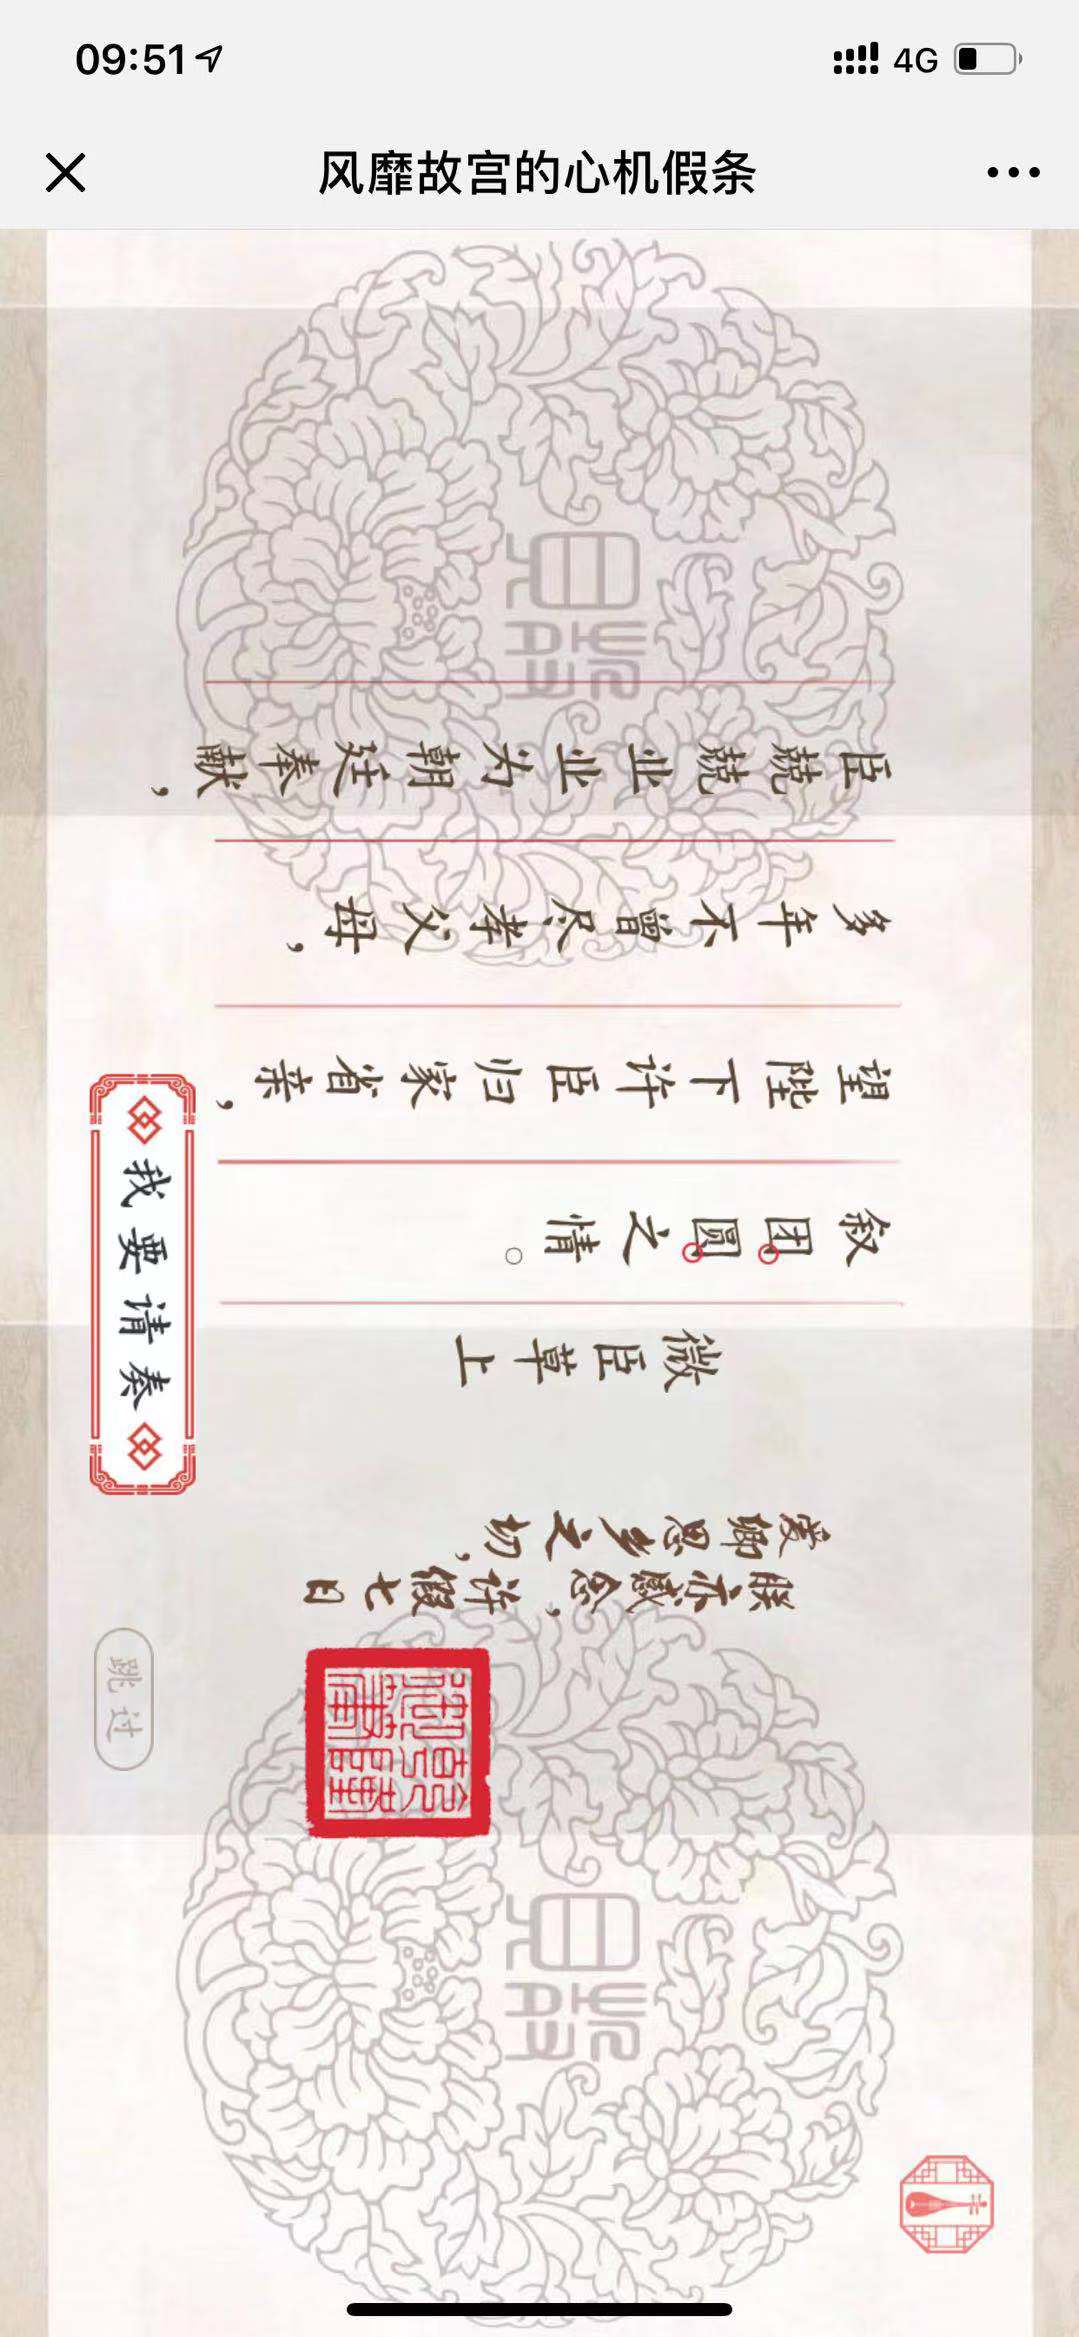 09:51
4G
风靡故宫的心机假条
臣兢兢业业为朝廷奉献，
多年不曾尽孝父母，
望陛下许臣归家省亲，
叙团圆之情。
微臣草上
爱卿思乡之切，
朕亦感念，许假七日
我要请奏
跳过